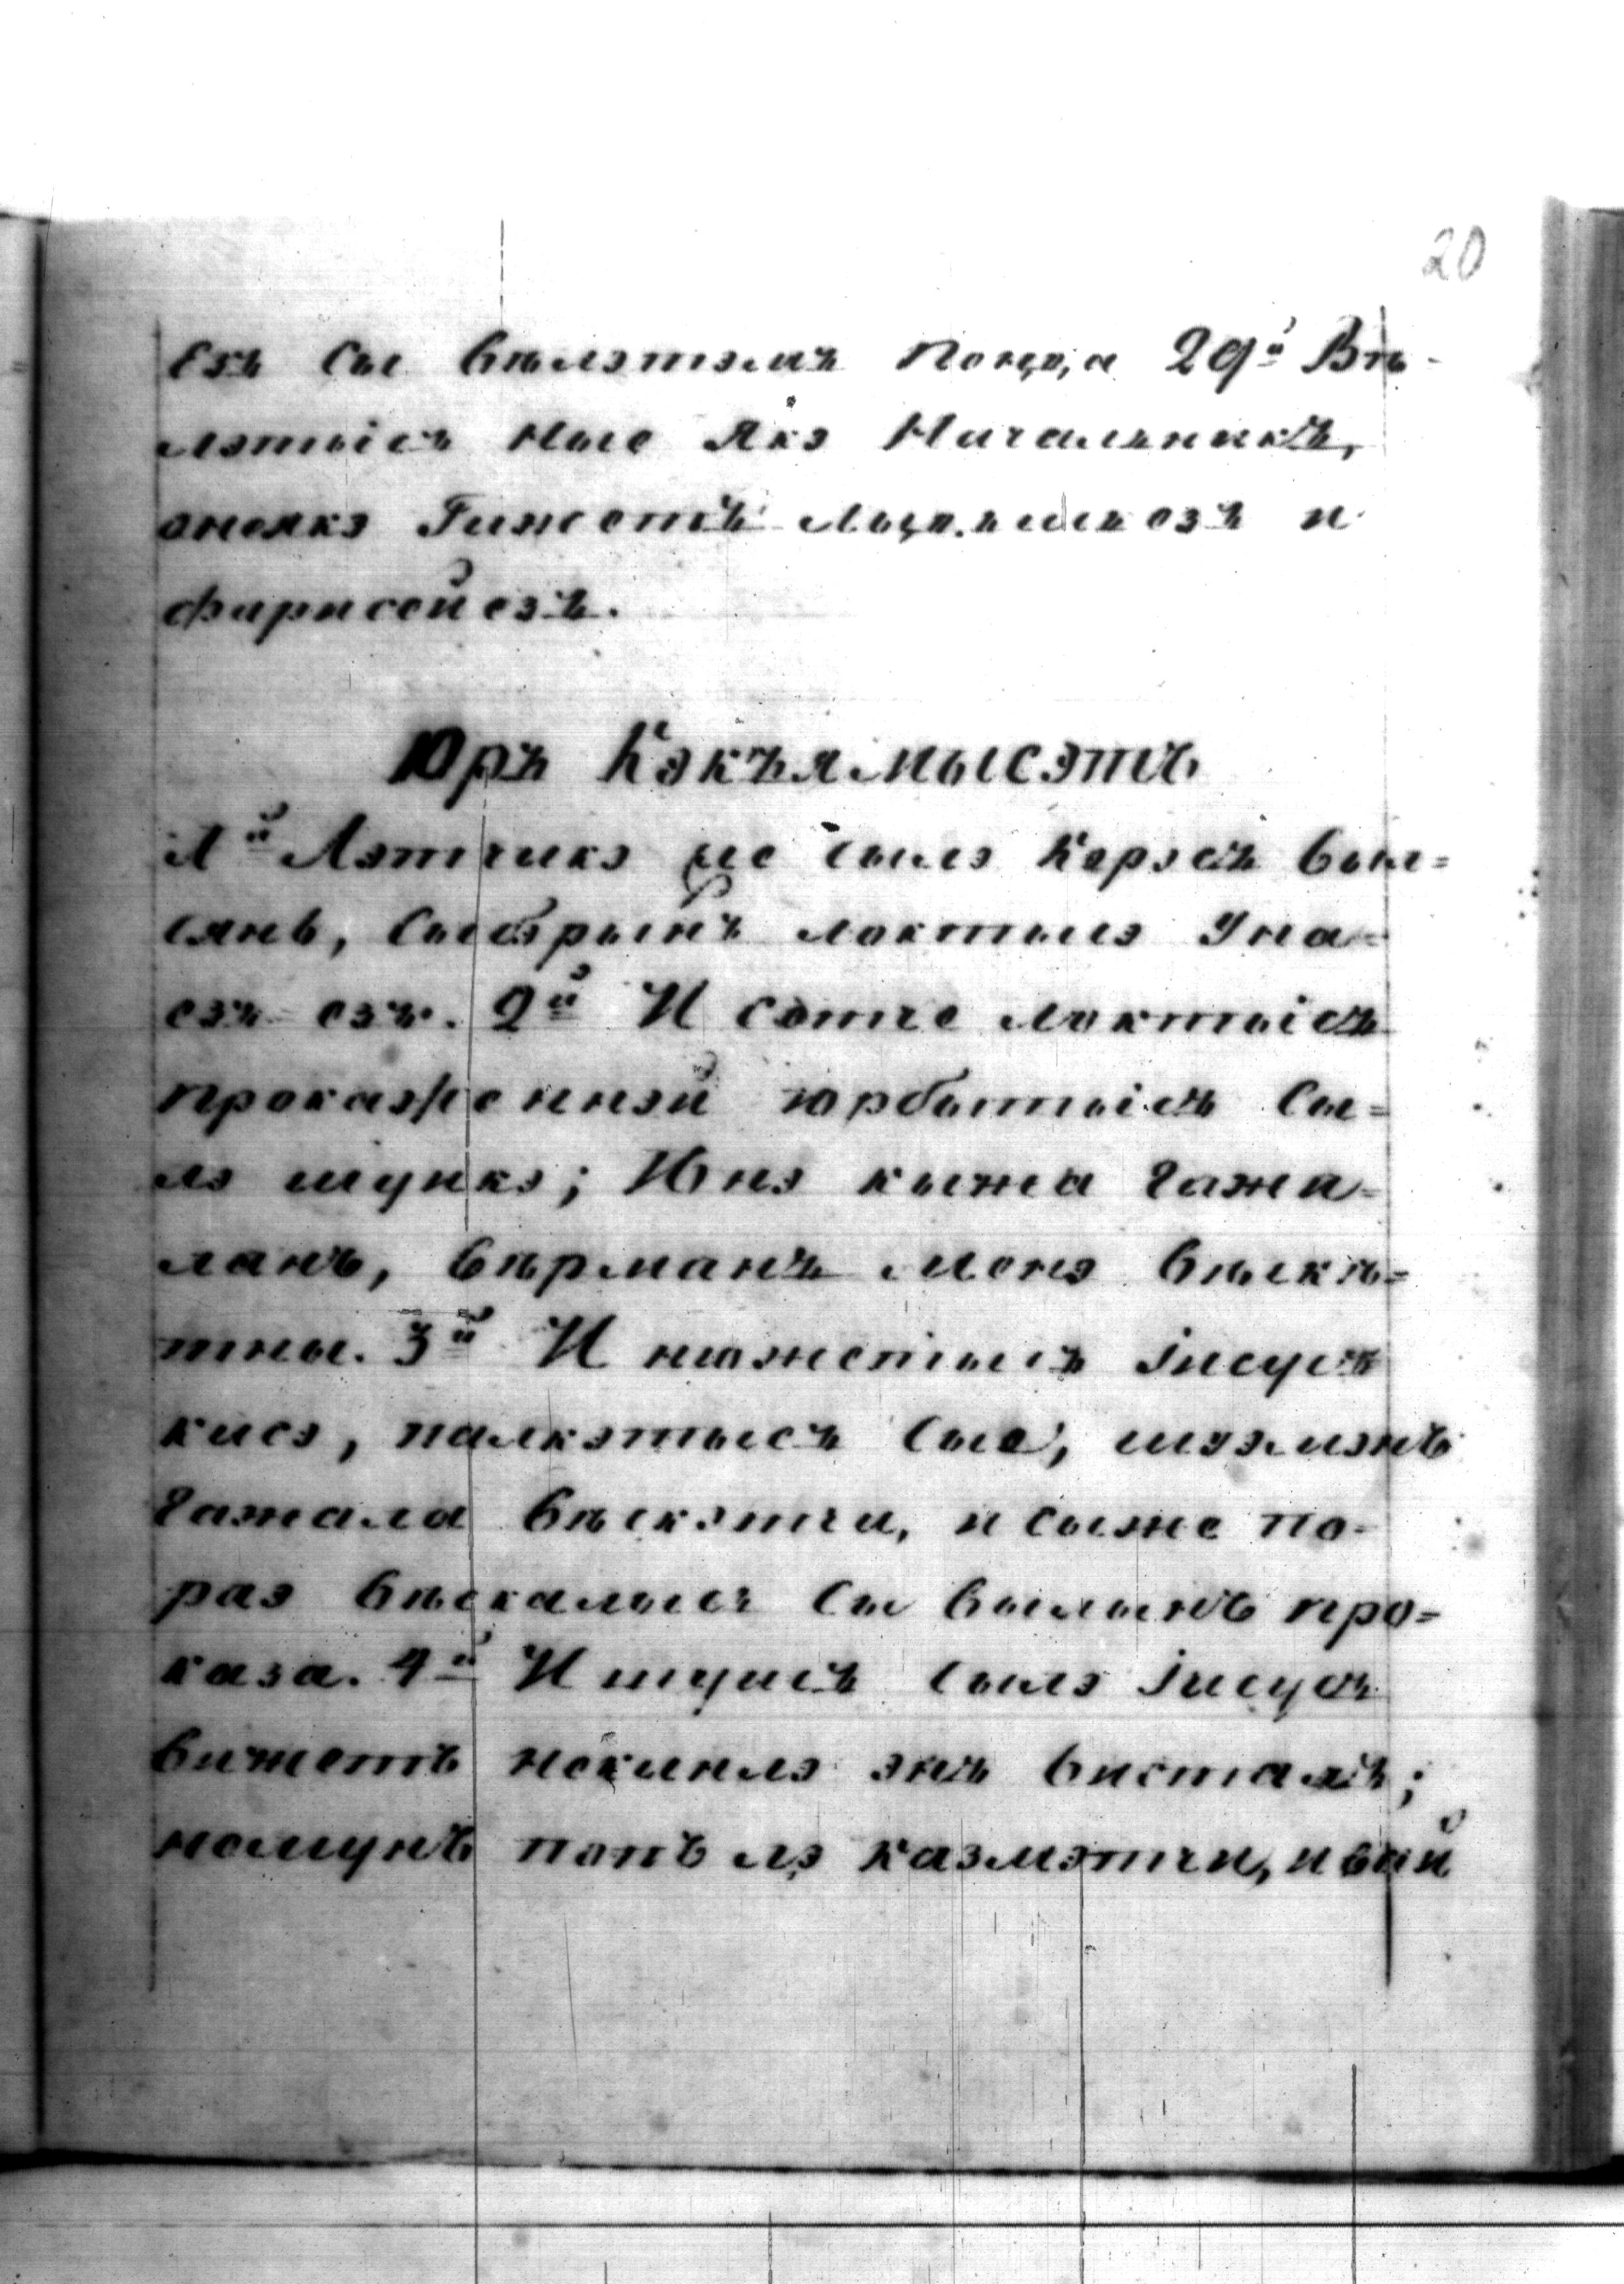 20
езъ сы вѣлэтэмъ понда 29й Вѣ-
лэтысъ кыс Якэ Начальникъ,
онөякэ Гижетъ лыддисьезъ и
фарисейезъ.
Юръ Кэкъямысэтъ
1й Лэтчикэ же сылэ керэсъ выв=
сянь, сыбэрынъ локтысэ Уна=
езъ езъ. 2й И сэтче локтысъ
прокаженнэй юрбытысъ сы=
лэ шуикэ; Юнэ кыжа гажа=
ланъ, вѣрманъ менэ вѣскѣ=
тны. 3й И нюжетысъ Iисусъ
кисэ, палкэтысъ сые, шуэмэнъ
гажала вѣскэтчи, и сыже по=
раэ вѣскалысъ сы вылынъ про=
каза. 4й И шуисъ сылэ Iисусъ
вижетъ некинлэ энъ висталъ;
но мунъ попъ лэ казмэтчи, и вай